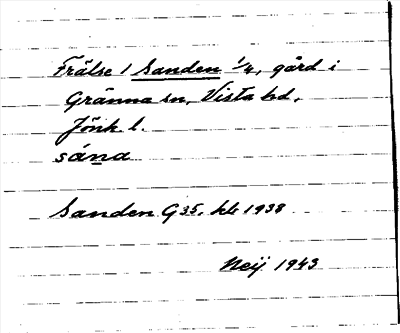 Frälse 1 Sanden 1/4, gård i
Gränna sn, Vista hd,
Jönk l.
sána
Sanden G35, kb 1938
Neij 1943